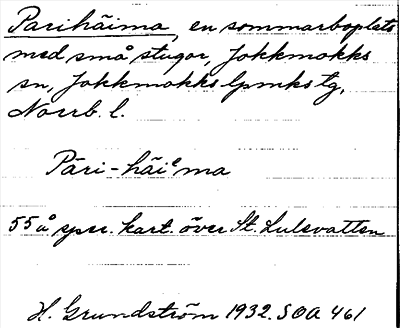 Parihäima, en sommarboplats
med små stugor, Jokkmokks
sn, Jokkmokks lpmks tg,
Norrb. l.
Pāri-häiᵉma
55 å. spec. kart. över St. Lulevatten
H. Grundström 1932. SOA 461